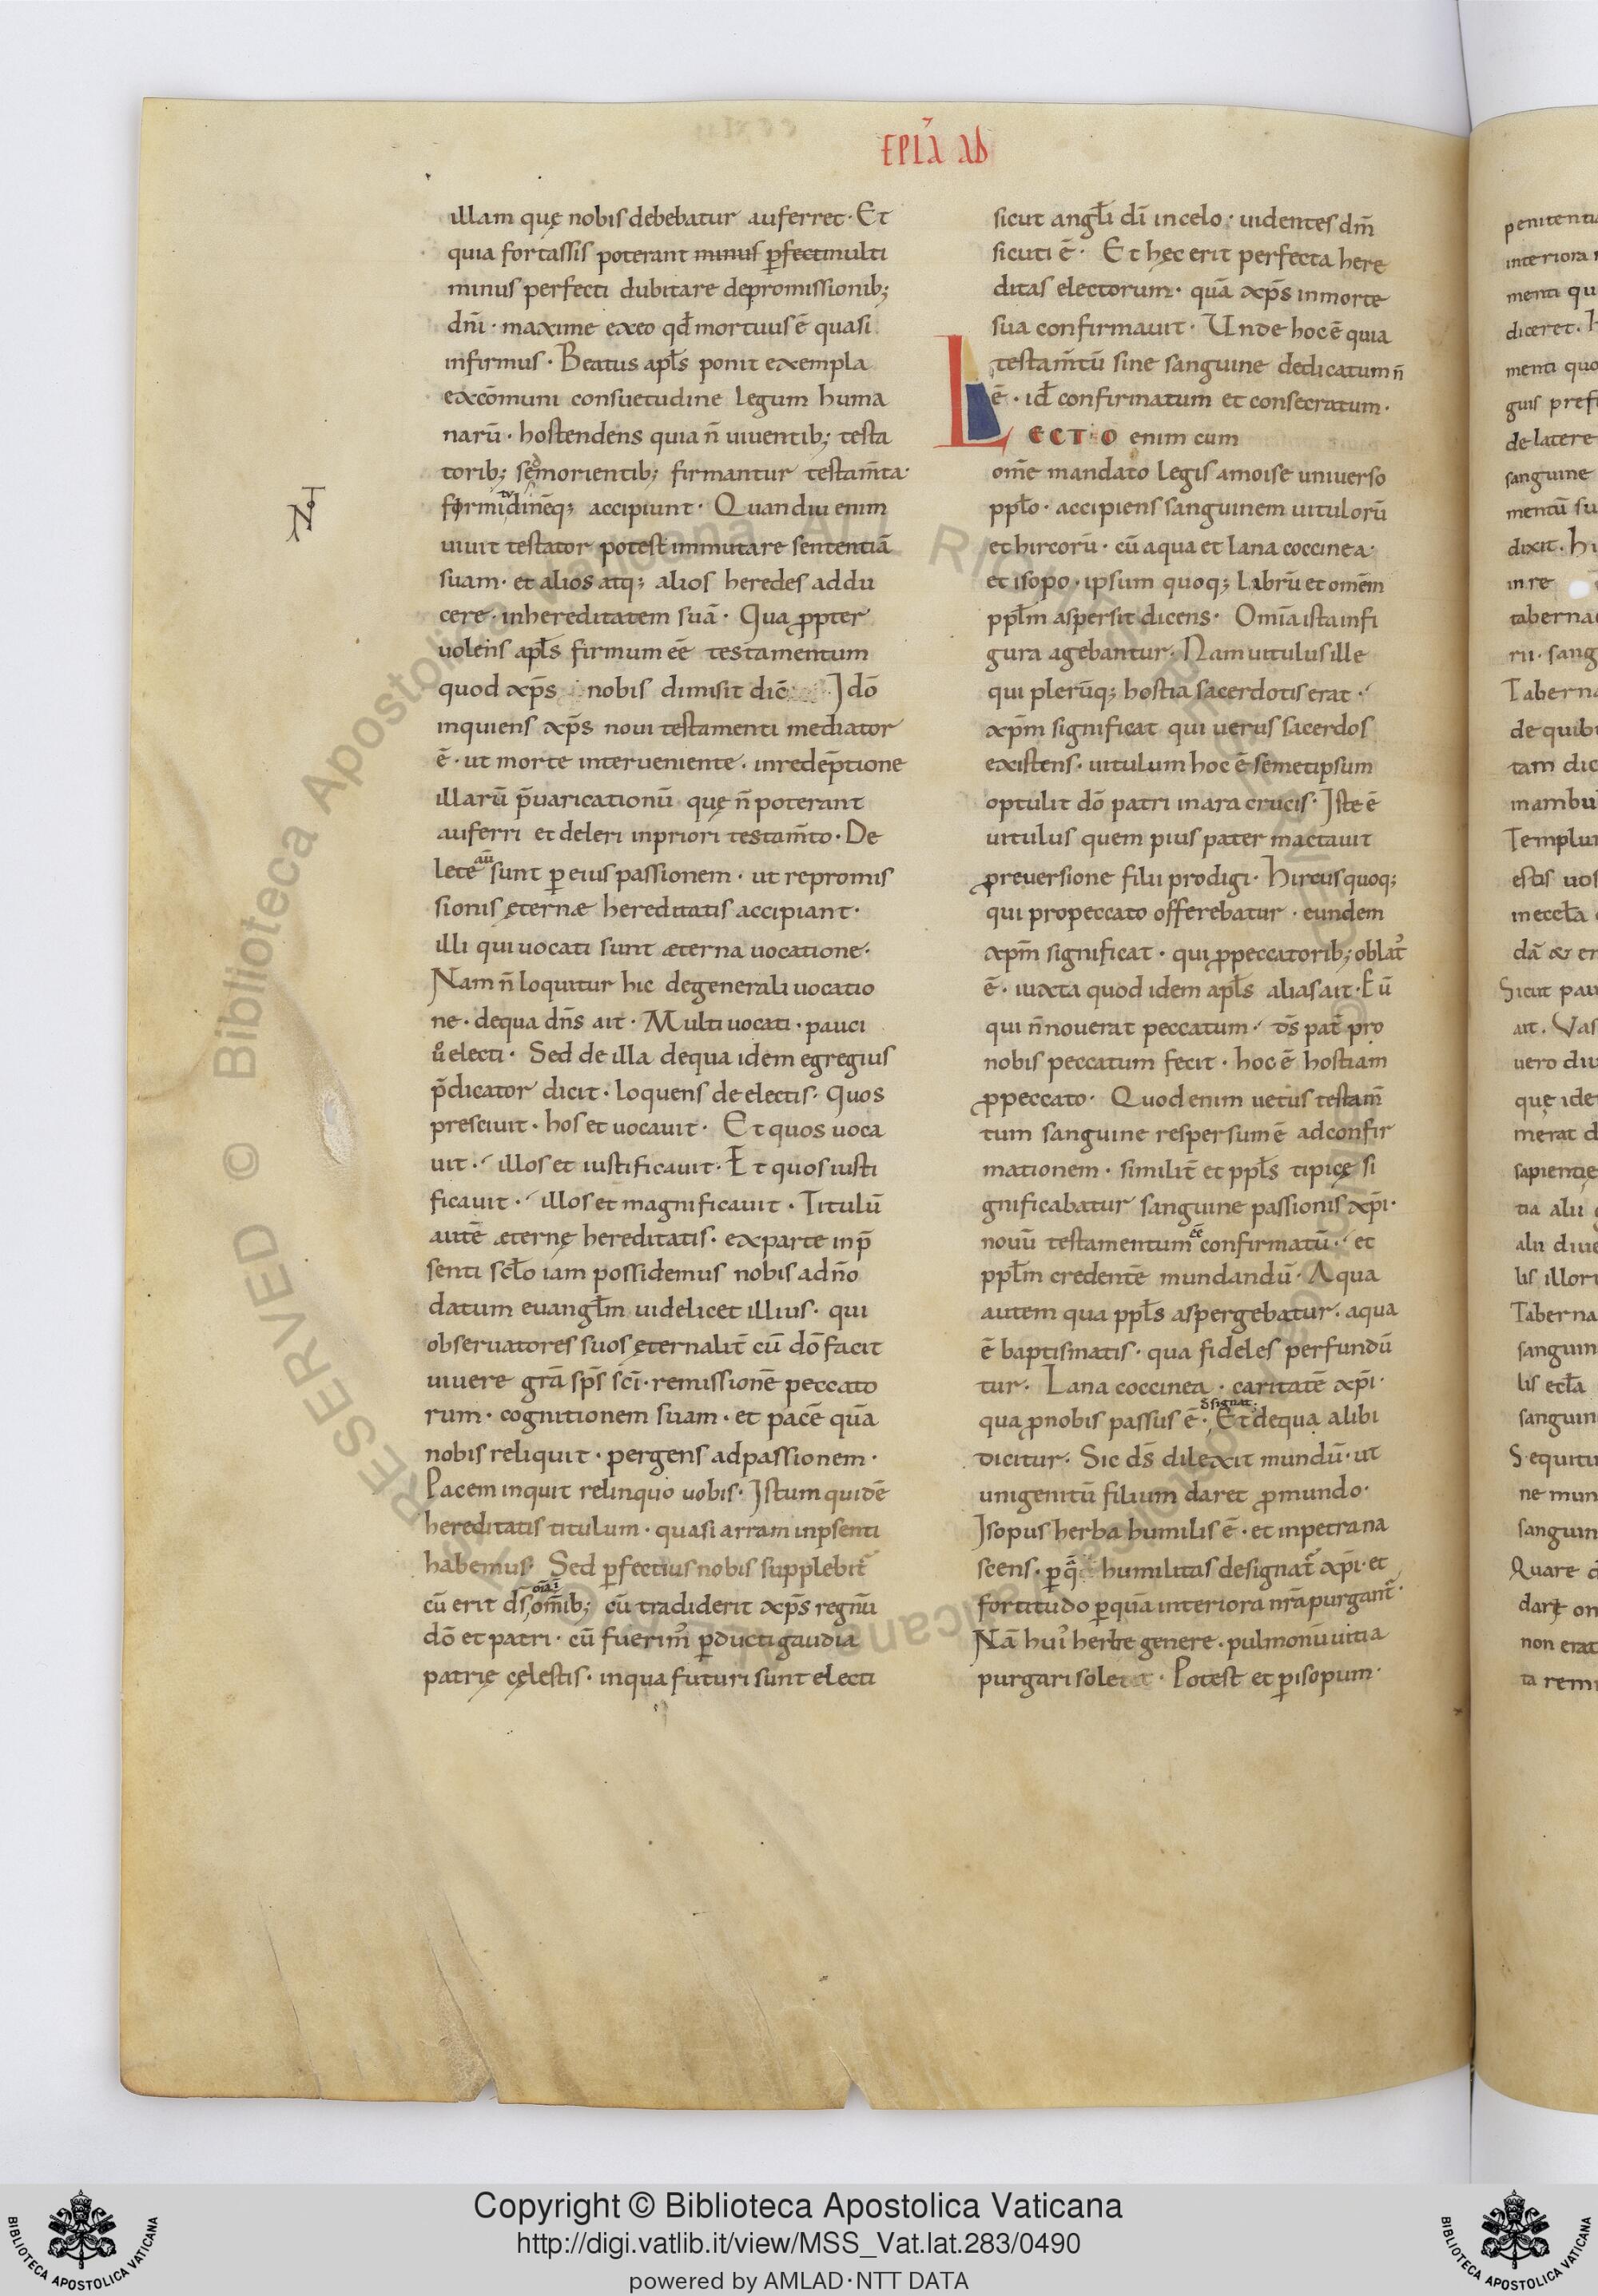 EPLĀ AD
illam quę nobis debebatur auferret · Et
quia fortassis poterant minus ꝑfecti multi
minus perfecti dubitare depromissionib;
dn̄i · maxime exeo qđ mortuus ē quasi
infirmus · Beatus apłs ponit exempla
excōmuni consuetudine legum huma
narū · hostendens quia n̄ uiuentib; testa
torib; morientib; firmantur testam̄ta ·
accipiunt · Quandiu enim
uiuit testator potest immutare sententiā
suam · et alios atq; alios heredes addu
cere · inhereditatem suā · Qua ꝓpter
uolens apłs firmum eē testamentum
quod xp̄s nobis dimisit dic̄ Idō
inquiens xp̄s noui testamenti mediator
ē · ut morte interueniente · inredēptione
illarū p̄uaricationū quę n̄ poterant
auferri et deleri inpriori testam̄to · De
lete aū sunt ꝑ eius passionem · ut repromis
sionis ęternæ hereditatis accipiant ·
illi qui uocati sunt æterna uocatione ·
Nam n̄ loquitur hic degenerali uocatio
ne · dequa dn̄s ait · Multi uocati · pauci
u᷎ electi · Sed de illa dequa idem egregius
p̄dicator dicit · loquens de electis · Quos
presciuit · hos et uocauit · Et quos uoca
uit · illos et iustificauit · Et quos iusti
ficauit · illos et magnificauit · Titulū
autē æternę hereditatis · exparte inp̄
senti scło iam possidemus nobis adn̄o
datum euangłm uidelicet illius · qui
obseruatores suos ęternalit̄ cū dō facit
uiuere grā sp̄s sc̄i · remissionē peccato
rum · cognitionem suam · et pacē quā
nobis reliquit · pergens adpassionem ·
Pacem inquit relinquo uobis · Istum quidē
hereditatis titulum · quasi arram inp̄senti
habemus · Sed ꝑfectius nobis supplebit᷎
cū erit ds̄ om̄ia in om̄ib; cū tradiderit xp̄s regnū
dō et patri · cū fuerim᷎ ꝑducti gaudia
patrię cęlestis · inqua futuri sunt electi
sicut angłi dī incelo · uidentes dm̄
sicuti ē · Et hęc erit perfecta here
ditas electorum · quā xp̄s inmorte
sua confirmauit · Unde hoc ē quia
testam̄tū sine sanguine dedicatum n̄
ē · iđ confirmatum et consecratum ·
LECTIO enim cum
om̄e mandato legis amoise uniuerso
ppło · accipiens sanguinem uitulorū
et hircorū · cū aqua et lana coccinea ·
et isopo · ipsum quoq; librū et omēm
ppłm aspersit dicens · Om̄ia ista infi
gura agebantur · Nam uitulus ille
qui plerūq; hostia sacerdotis erat ·
xp̄m significat qui uerus sacerdos
existens · uitulum hoc ē semetipsum
optulit dō patri inara crucis · Iste ē
uitulus quem pius pater mactauit
ꝓ reuersione filii prodigi · Hircus quoq;
qui propeccato offerebatur · eundem
xp̄m significat · qui ꝓpeccatorib; oblat᷎
ē · iuxta quod idem apłs alias ait · Eū
qui n̄ nouerat peccatum · ds̄ pat̄ pro
nobis peccatum fecit · hoc ē hostiam
ꝓpeccato · Quod enim uetus testam̄
tum sanguine respersum ē adconfir
mationem · similit̄ et ppłs tipicę si
gnificabatur sanguine passionis xp̄i ·
nouū testamentum eē confirmatū · et
ppłm credentē mundandū · Aqua
autem qua ppłs aspergebatur · aqua
ē baptismatis · qua fideles perfundū
tur · Lana coccinea · caritatē xp̄i ·
qua ꝓnobis passus ē · designat · Et dequa alibi
dicitur · Sic ds̄ dilexit mundū · ut
unigenitū filium daret ꝓmundo ·
Isopus herba humilis ē · et inpetrana
scens · ꝑ quā humilitas designat᷎ xp̄i · et
fortitudo ꝑquā interiora nr̄a purgant᷎ ·
Nā hui᷎ herbe genere · pulmonū uitia
purgari solet · Potest et ꝑisopum ·
Copyright © Biblioteca Apostolica Vaticana
http://digi.vatlib.it/view/MSS_Vat.lat.283/0490
powered by AMLAD·NTT DATA
BIBLIOTECA APOSTOLICA VATICANA
BIBLIOTECA APOSTOLICA VATICANA